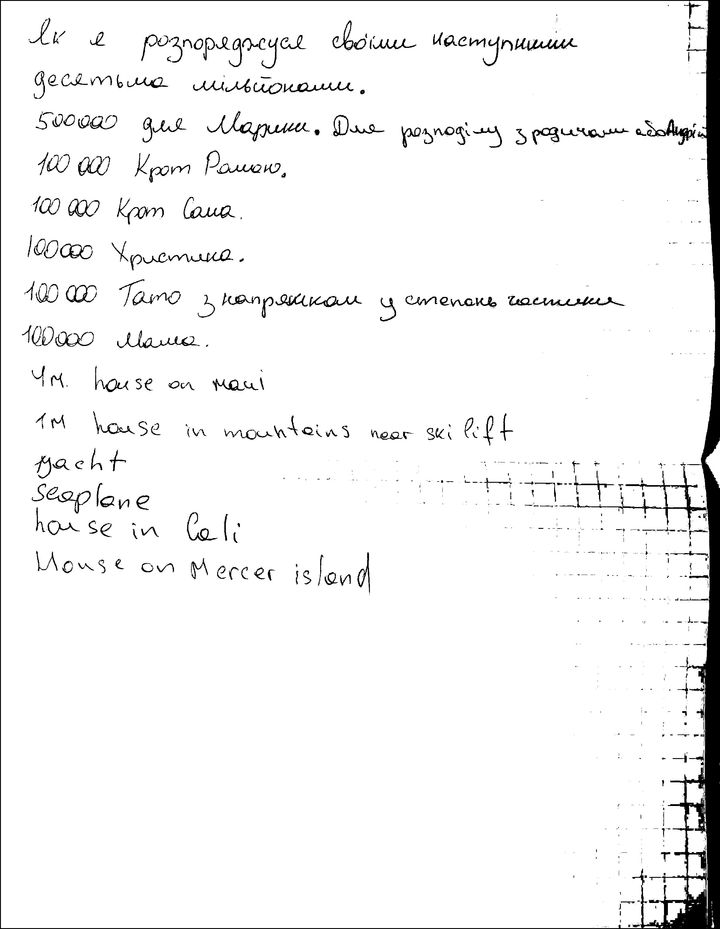 Як я розпоряджуся своїми наступними
десятьма мільйонами.
500000 для Марини. Для розподілу з родичами або Андрій
100 000 Крот Рамаю.
100 000 Крот Саша.
100000 Христина.
100 000 Тато з напрямком у степань частики
100000 Мама.
4м. house on maui
1м house in mountains near ski lift
yacht
seaplane
house in Cali
House on Mercer island